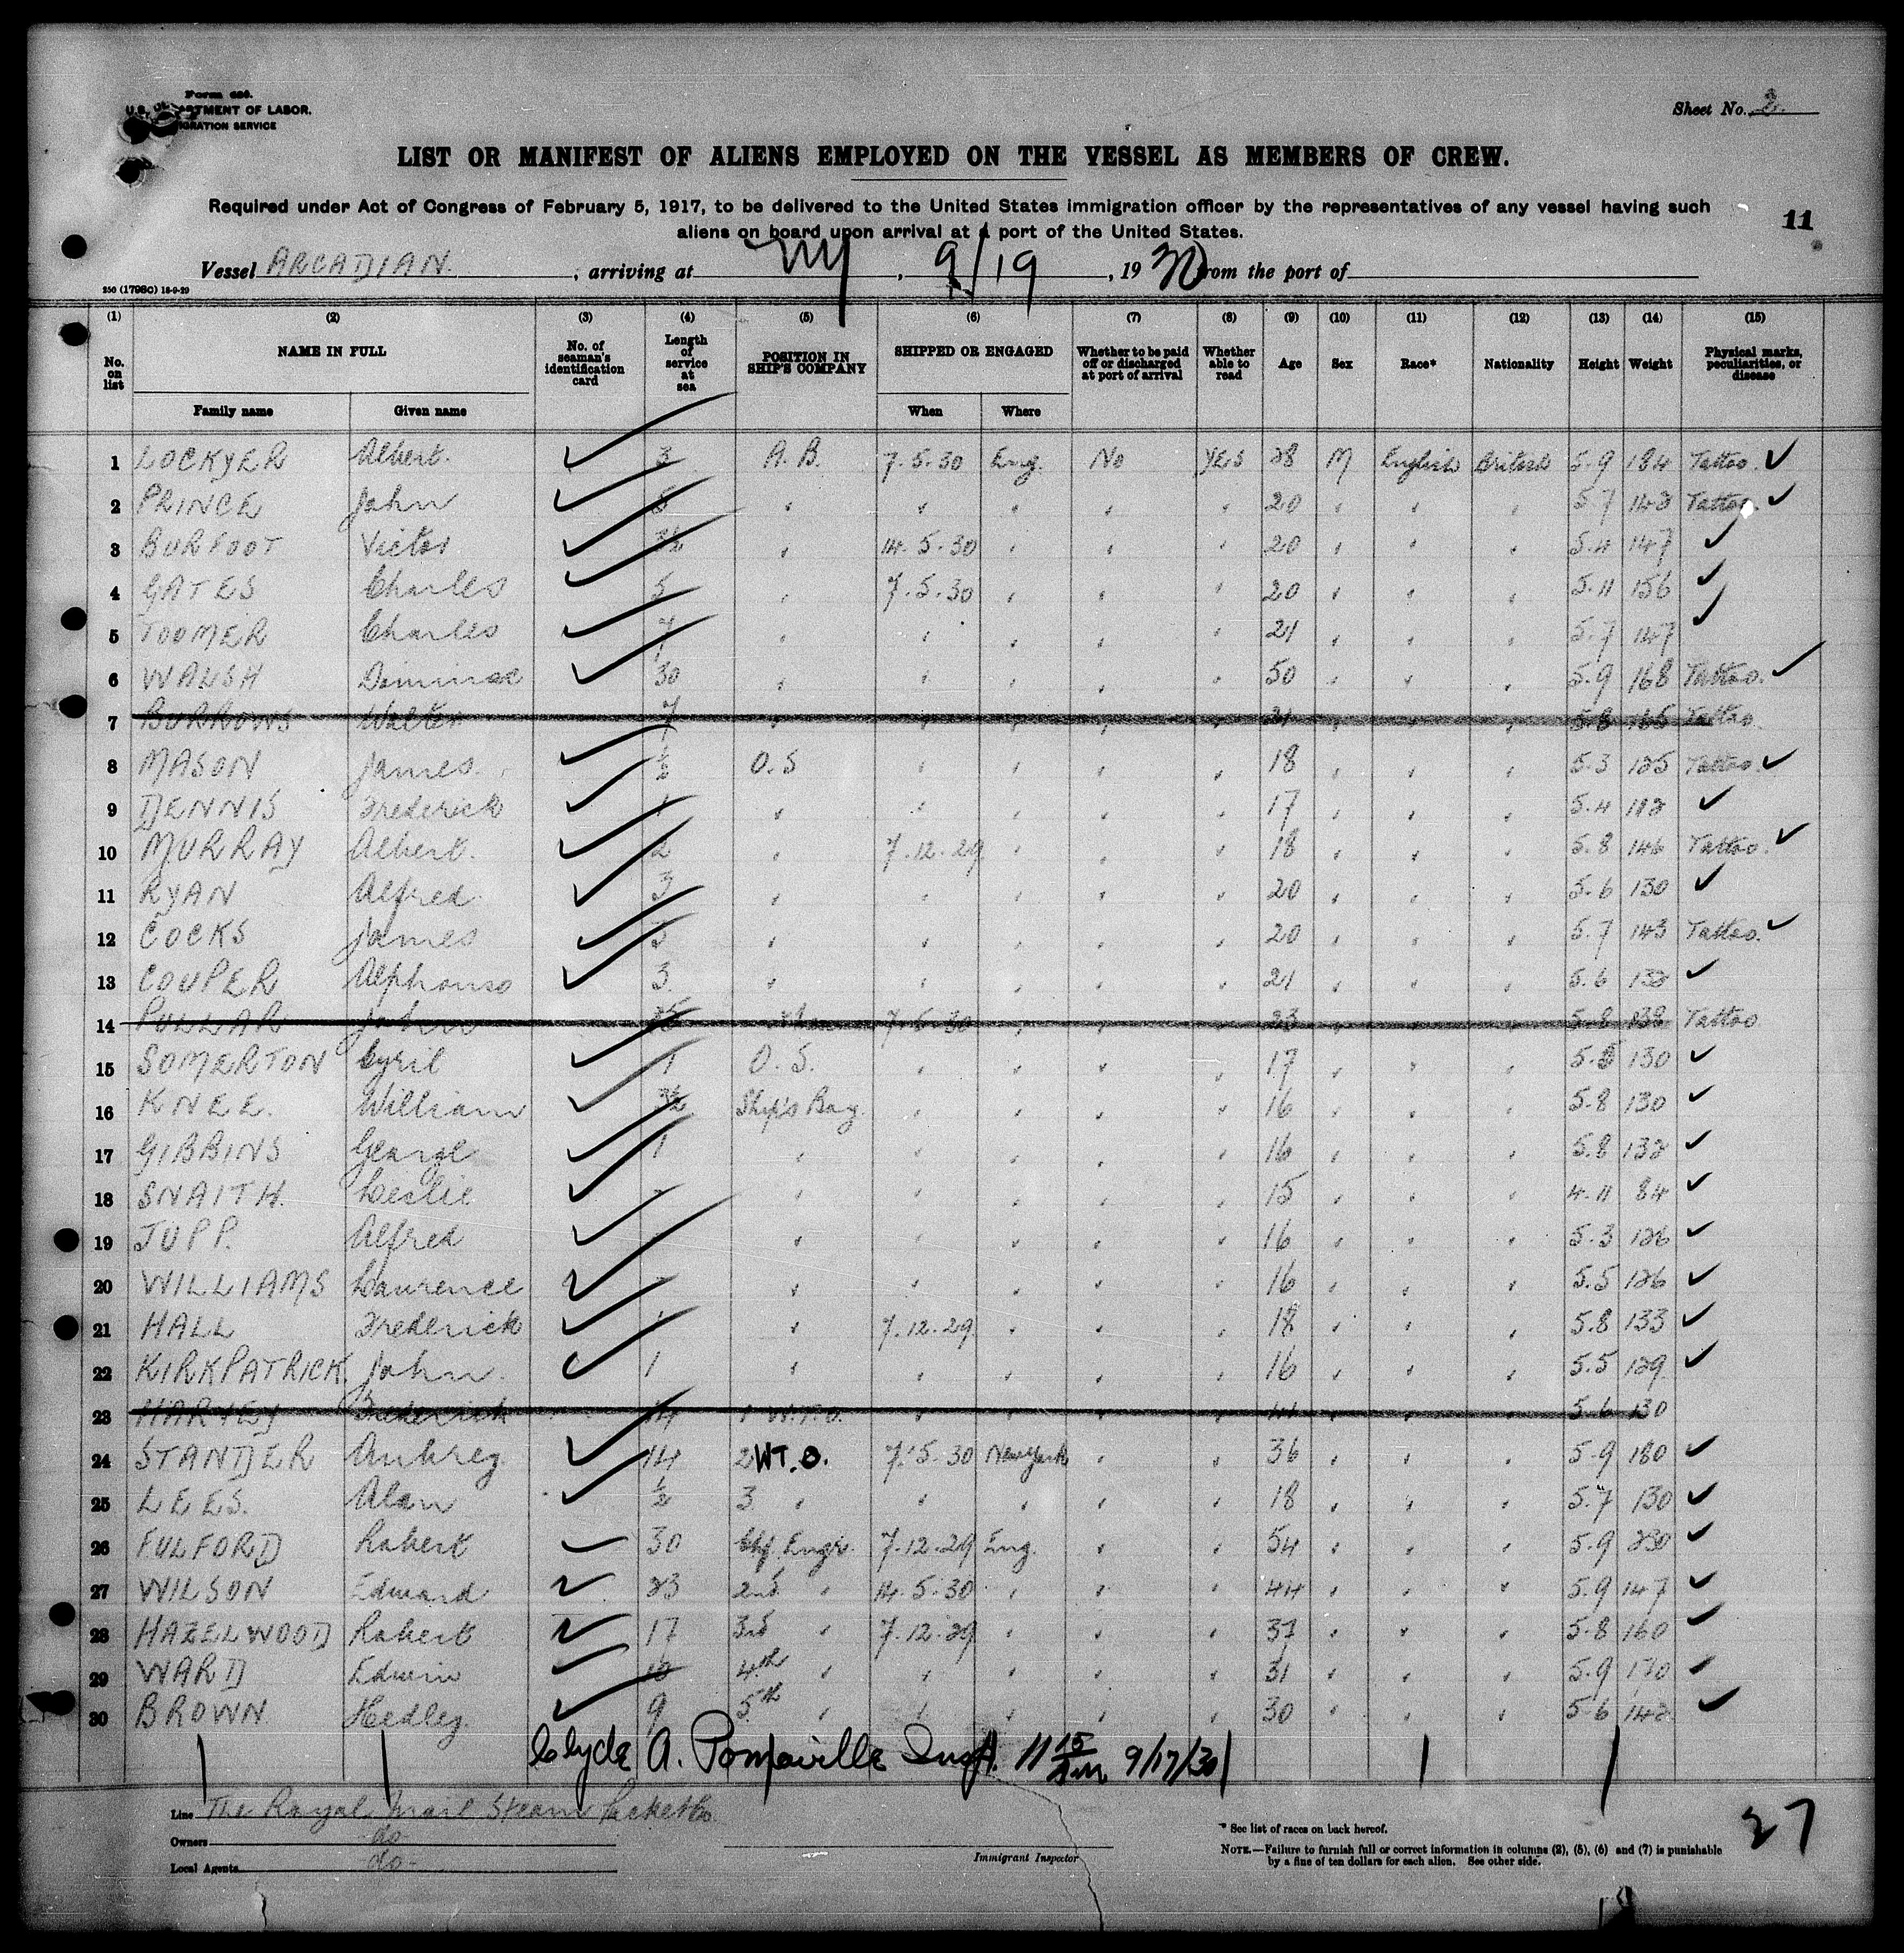 Form 680.
U.S. DEPARTMENT OF LABOR.
IMMIGRATION SERVICE
Sheet No. 2.
LIST OR MANIFEST OF ALIENS EMPLOYED ON THE VESSEL AS MEMBERS OF CREW.
Required under Act of Congress of February 5, 1917, to be delivered to the United States immigration officer by the representatives of any vessel having such
aliens on board upon arrival at a port of the United States.
11
Vessel ARCADIAN. , arriving at NY , 9/19 , 1930 from the port of
250 (1798c) 18-9-29
(1) (2) (3) (4) (5) (6) (7) (8) (9) (10) (11) (12) (13) (14) (15)
No. on list NAME IN FULL No. of seaman's identification card Length of service at sea POSITION IN SHIP'S COMPANY SHIPPED OR ENGAGED Whether to be paid off or discharged at port of arrival Whether able to read Age Sex Race* Nationality Height Weight Physical marks, peculiarities, or disease
Family name Given name When Where
1 LOCKYER Albert. 3 A.B. 7.5.30 Eng. No YES 28 M English British 5.9 184 Tattoo. ✓
2 PRINCE John 5 " " " " " 20 " " " 5.7 148 Tattoo. ✓
3 BURFOOT Victor 3½ " 14.5.30 " " " 20 " " " 5.4 147 ✓
4 GATES Charles 5 " 7.5.30 " " " 20 " " " 5.11 156 ✓
5 TOOMER Charles 7 " " " " " 21 " " " 5.7 147 ✓
6 WALSH 30 " " " " " 50 " " " 5.9 168 Tattoo. ✓
7 BURROWS Walter 7 " " " " " 21 " " " 5.8 165 Tattoo.
8 MASON James. ½ O.S " " " " 18 " " " 5.3 125 Tattoo. ✓
9 DENNIS Frederick 1 " " " " " 17 " " " 5.4 ✓
10 MURRAY Albert. 2 " 7.12.29 " " " 18 " " " 5.8 146 Tattoo. ✓
11 RYAN Alfred. 3 " " " " " 20 " " " 5.6 130 ✓
12 COCKS James 3 " " " " " 20 " " " 5.7 143 Tattoo. ✓
13 COUPER Alphonso 3. " " " " " 21 " " " 5.6 138 ✓
14 PULLAR John 7.5.30 " " " 23 " " " 5.8 138 Tattoo
15 SOMERTON Cyril 1 O.S. " " " " 17 " " " 130 ✓
16 KNEE. William Ship's Boy. " " " " 16 " " " 5.8 130 ✓
17 GIBBINS George 1 " " " " " 16 " " " 5.8 132 ✓
18 SNAITH. Leslie - " " " " " 15 " " " 4.11 84 ✓
19 JUPP. Alfred - " " " " " 16 " " " 5.3 126 ✓
20 WILLIAMS Laurence - " " " " " 16 " " " 5.5 126 ✓
21 HALL Frederick 1 " 7.12.29 " " " 18 " " " 5.8 133 ✓
22 KIRKPATRICK. John. 1 " " " " " 16 " " " 5.5 129 ✓
23 HARVEY Frederick 14 1 W.T.O. " " " " 41 " " " 5.6 130
24 STANDER Aubrey. 14 2 W.T.O. 7.5.30 New York " " 36 " " " 5.9 180 ✓
25 LEES. Alan ½ 3 " " " " " 18 " " " 5.7 130 ✓
26 FULFORD Robert 30 Chf. Engr. 7.12.29 Eng. " " 54 " " " 5.9 230 ✓
27 WILSON Edward 23 2nd " 14.5.30 " " " 44 " " " 5.9 147 ✓
28 HAZELWOOD Robert 17 3rd " 7.12.29 " " " 37 " " " 5.8 160 ✓
29 WARD Edwin 10 4th " " " " " 31 " " " 5.9 170 ✓
30 BROWN. Hedley. 9 5th " " " " " 30 " " " 5.6 142 ✓
Clyde A. Pomaville Insp. 11 15 am 9/17/30
Line The Royal Mail Steam Packet Co.
Owners do
Local Agents do-
Immigrant Inspector
* See list of races on back hereof.
NOTE.—Failure to furnish full or correct information in columns (2), (5), (6) and (7) is punishable
by a fine of ten dollars for each alien. See other side.
27